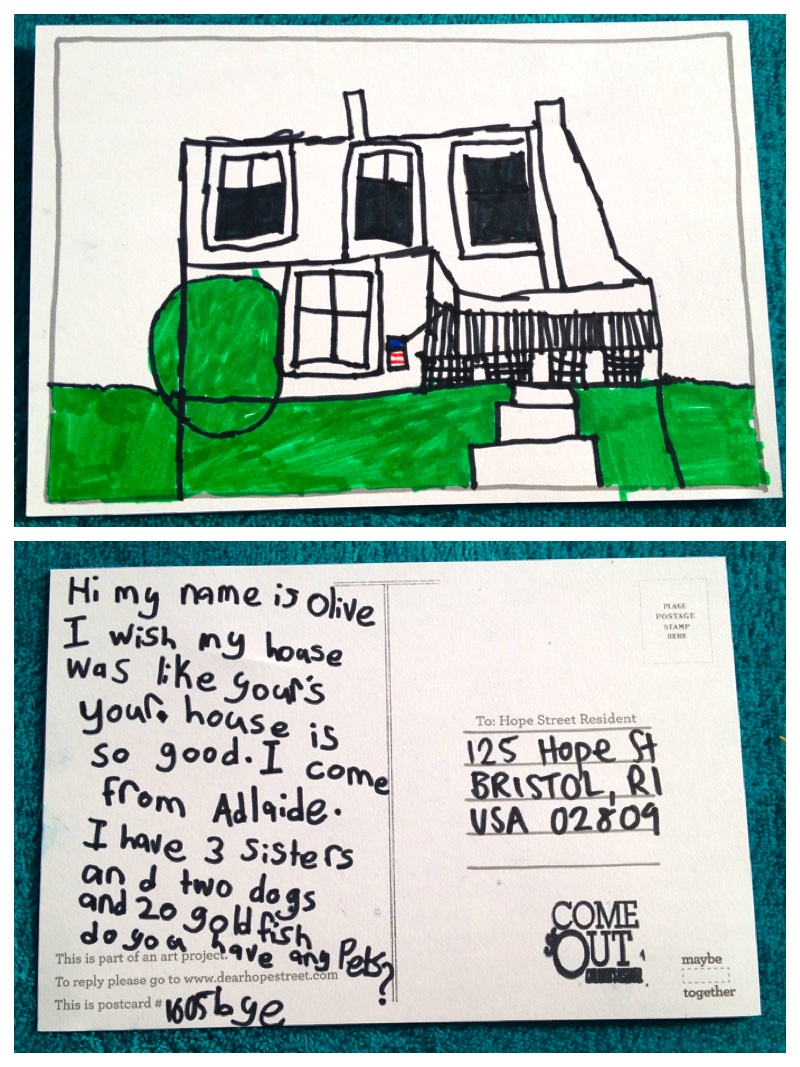 Hi my name is Olive
I wish my house
was like your's
your. house is
so good. I come
from Adlaide.
I have 3 sisters
and two dogs
and 20 goldfish
do you have any Pets?
This is part of an art project.
To reply please go to www.dearhopestreet.com
This is postcard # 1605 bye
PLACE
POSTAGE
STAMP
HERE
To: Hope Street Resident
125 Hope St
BRISTOL, RI
USA 02809
COME
OUT
maybe
together